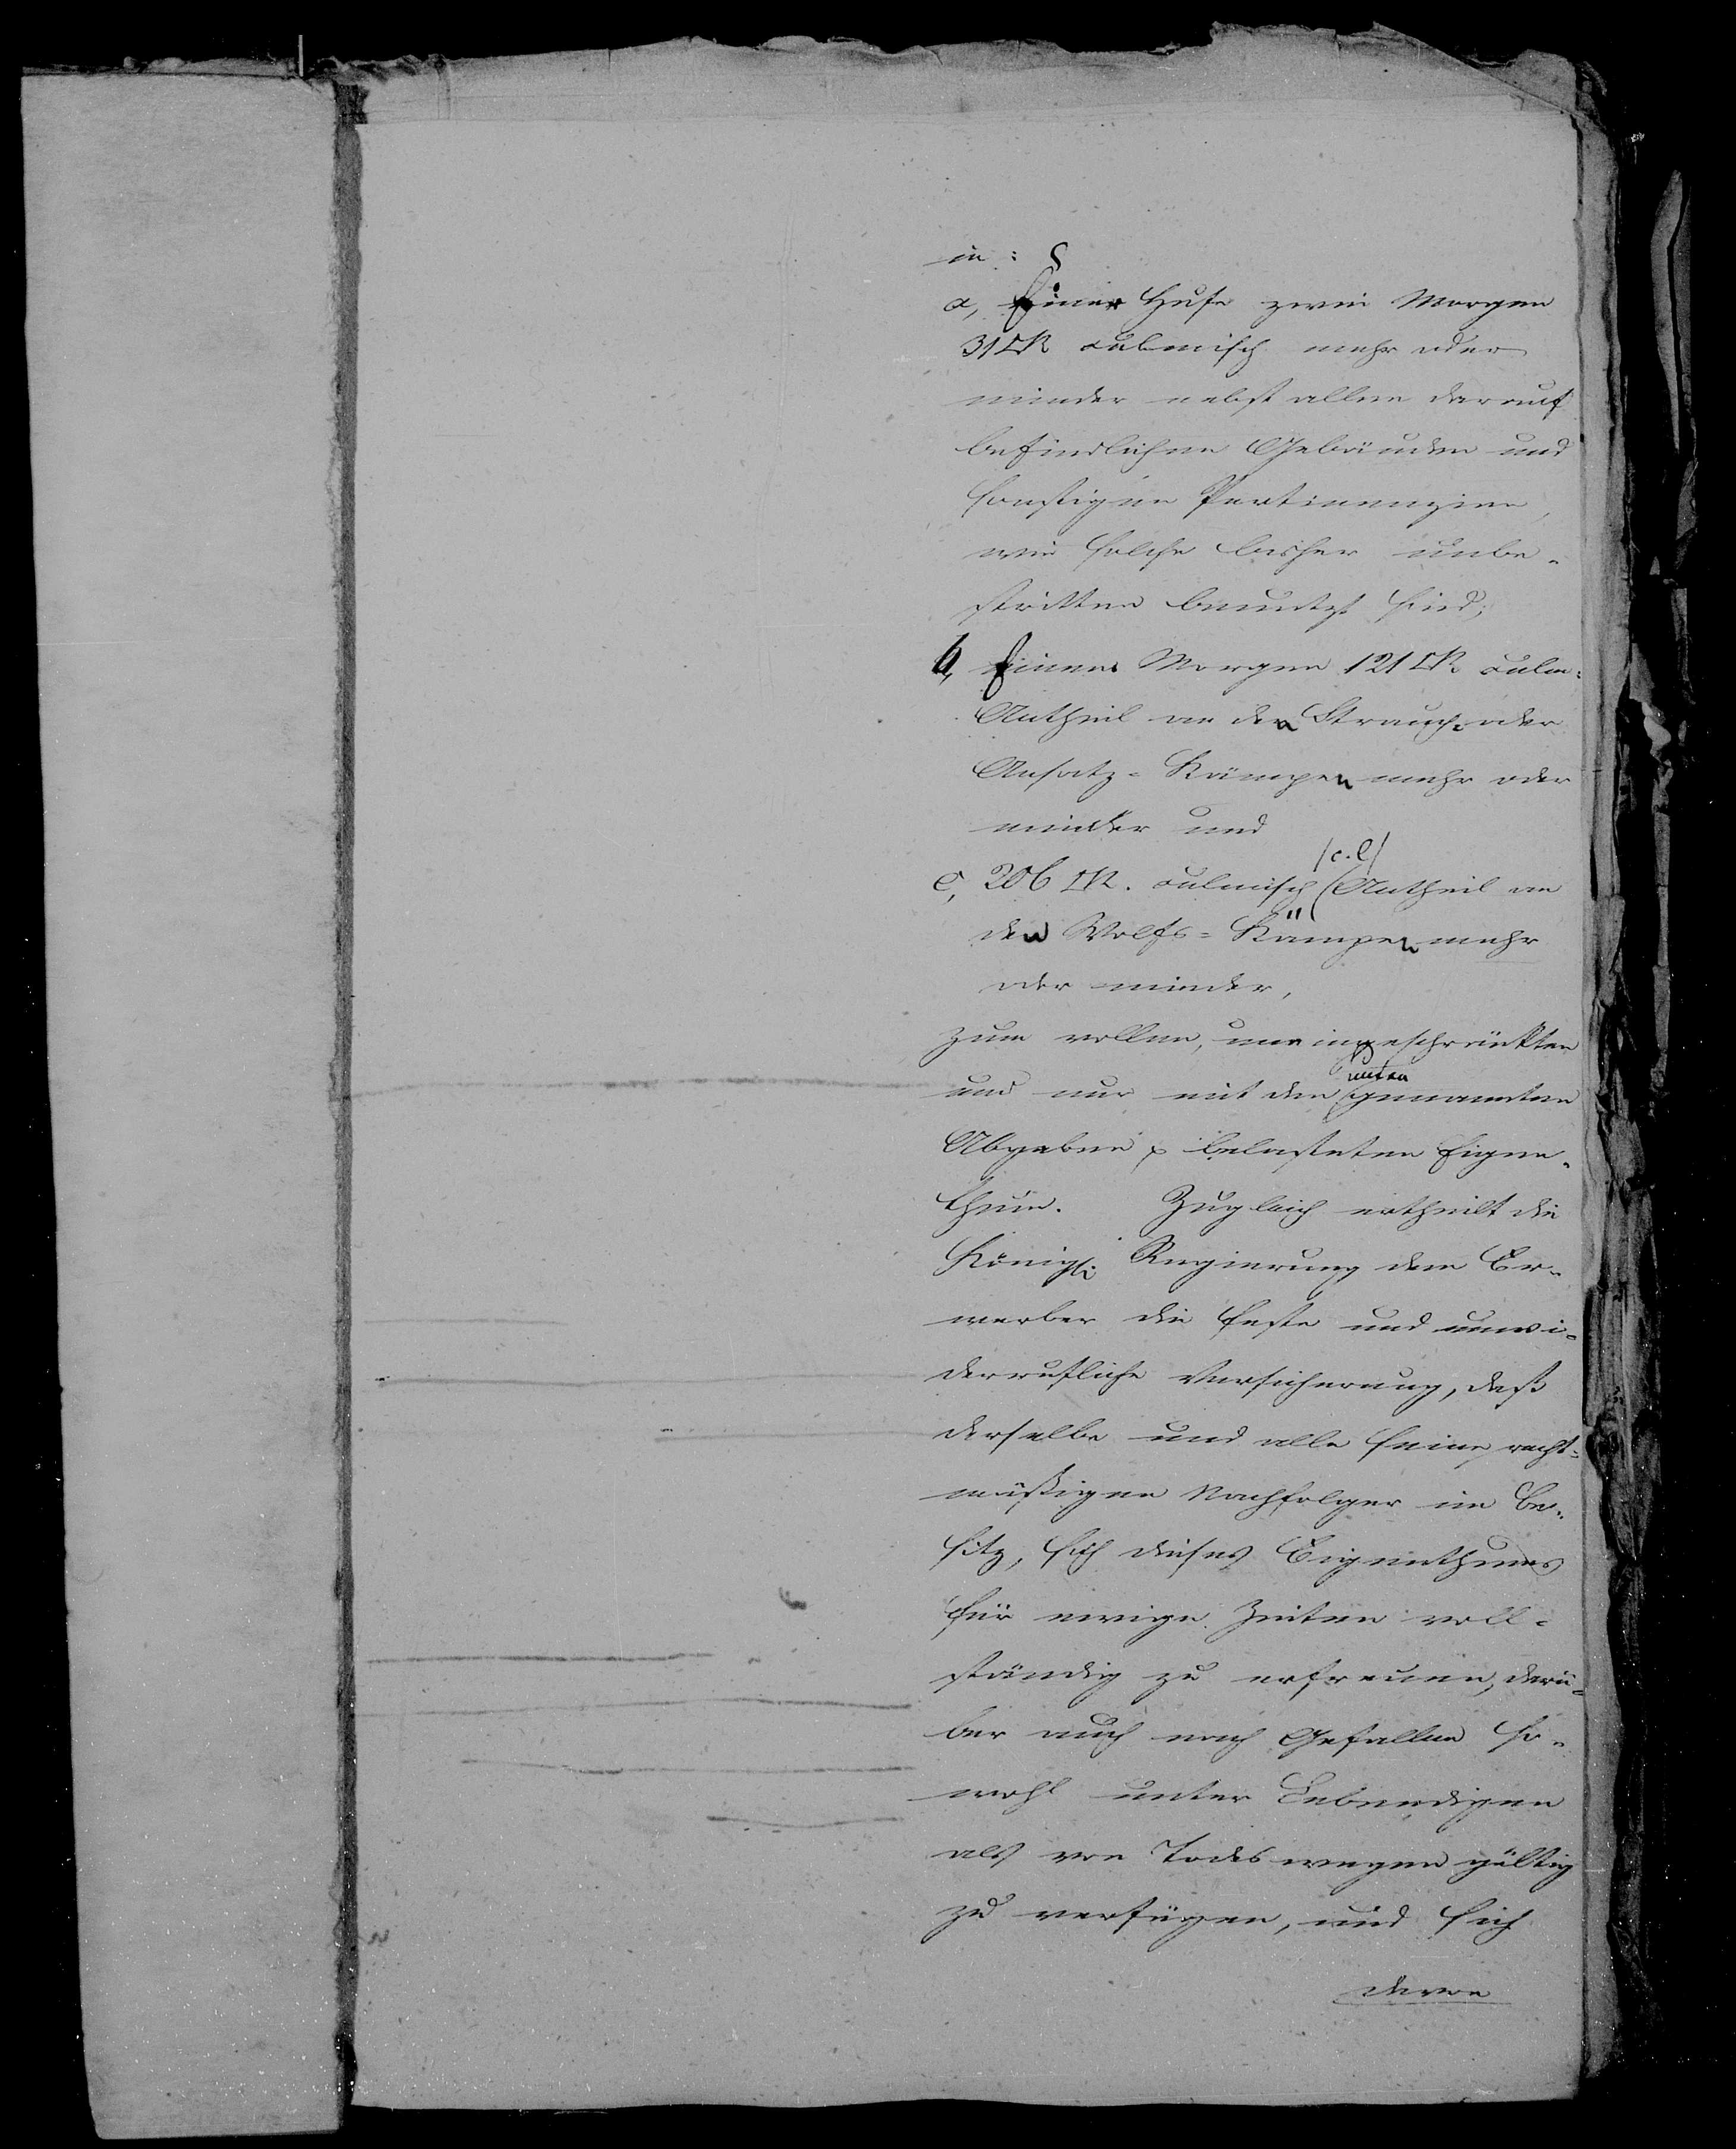 in:
a, Einer Hufe zwei Morgen
31 □R culmisch mehr oder
minder nebst allen darauf
befindlichen Gebäuden und
sonstigen Pertinenzien,
wie solche bisher unbe-
stritten benutzt sind;
b, Einen Morgen 121 □R culm:
Antheil an den Strauch- oder
Ansatz-Kämpen mehr oder
minder und
(c. l)
c, 206 □R. culmisch Antheil an
den Wolfs-Kämpen mehr
oder minder,
zum vollen, uneingeschränkten
unten
und nur mit den genannten
Abgaben p belasteten Eigen-
thum. Zugleich ertheilt die
Königl: Regierung dem Er-
werber die feste und unwi-
derrufliche Versicherung, daß
derselbe und alle seine recht-
mäßigen Nachfolger im Be-
sitz, sich dieses Eigenthums
für ewige Zeiten voll-
ständig zu erfreuen, darü-
ber auch nach Gefallen so-
wohl unter Lebendigen
als von Todes wegen gültig
zu verfügen, und sich
davon